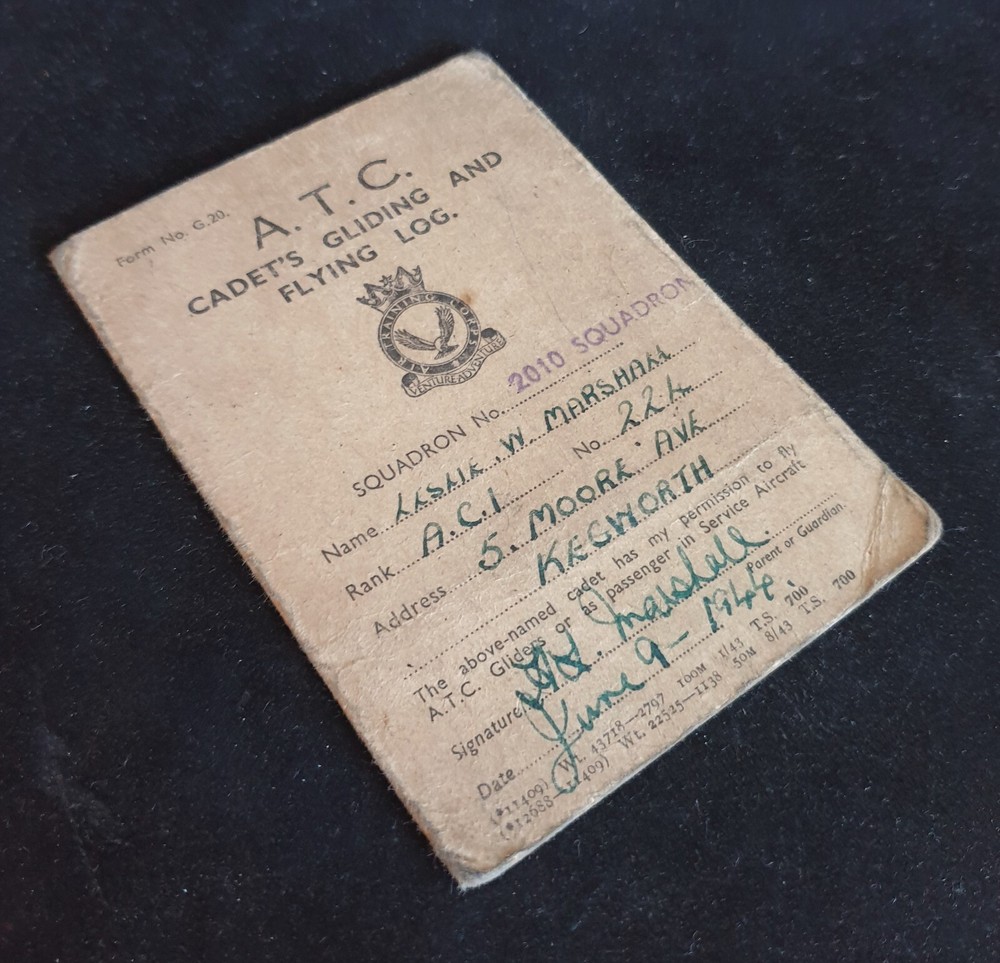 Form No. G.20.
A. T. C.
CADET'S GLIDING AND
FLYING LOG.
AIR TRAINING CORPS
VENTURE ADVENTURE
SQUADRON No. 2010 SQUADRON
Name LESLIE W MARSHALL
Rank A.C.1 No. 224
Address 5. MOORE AVE
KEGWORTH
The above-named cadet has my permission to fly
A.T.C. Gliders or as passenger in Service Aircraft
Signature Marshall.
Parent or Guardian.
Date June 9 - 1944.
(*11409) Wt. 43718—2797 100M 1/43 T.S. 700
(*12688—11409) Wt. 22525—1138 50M 8/43 T.S. 700